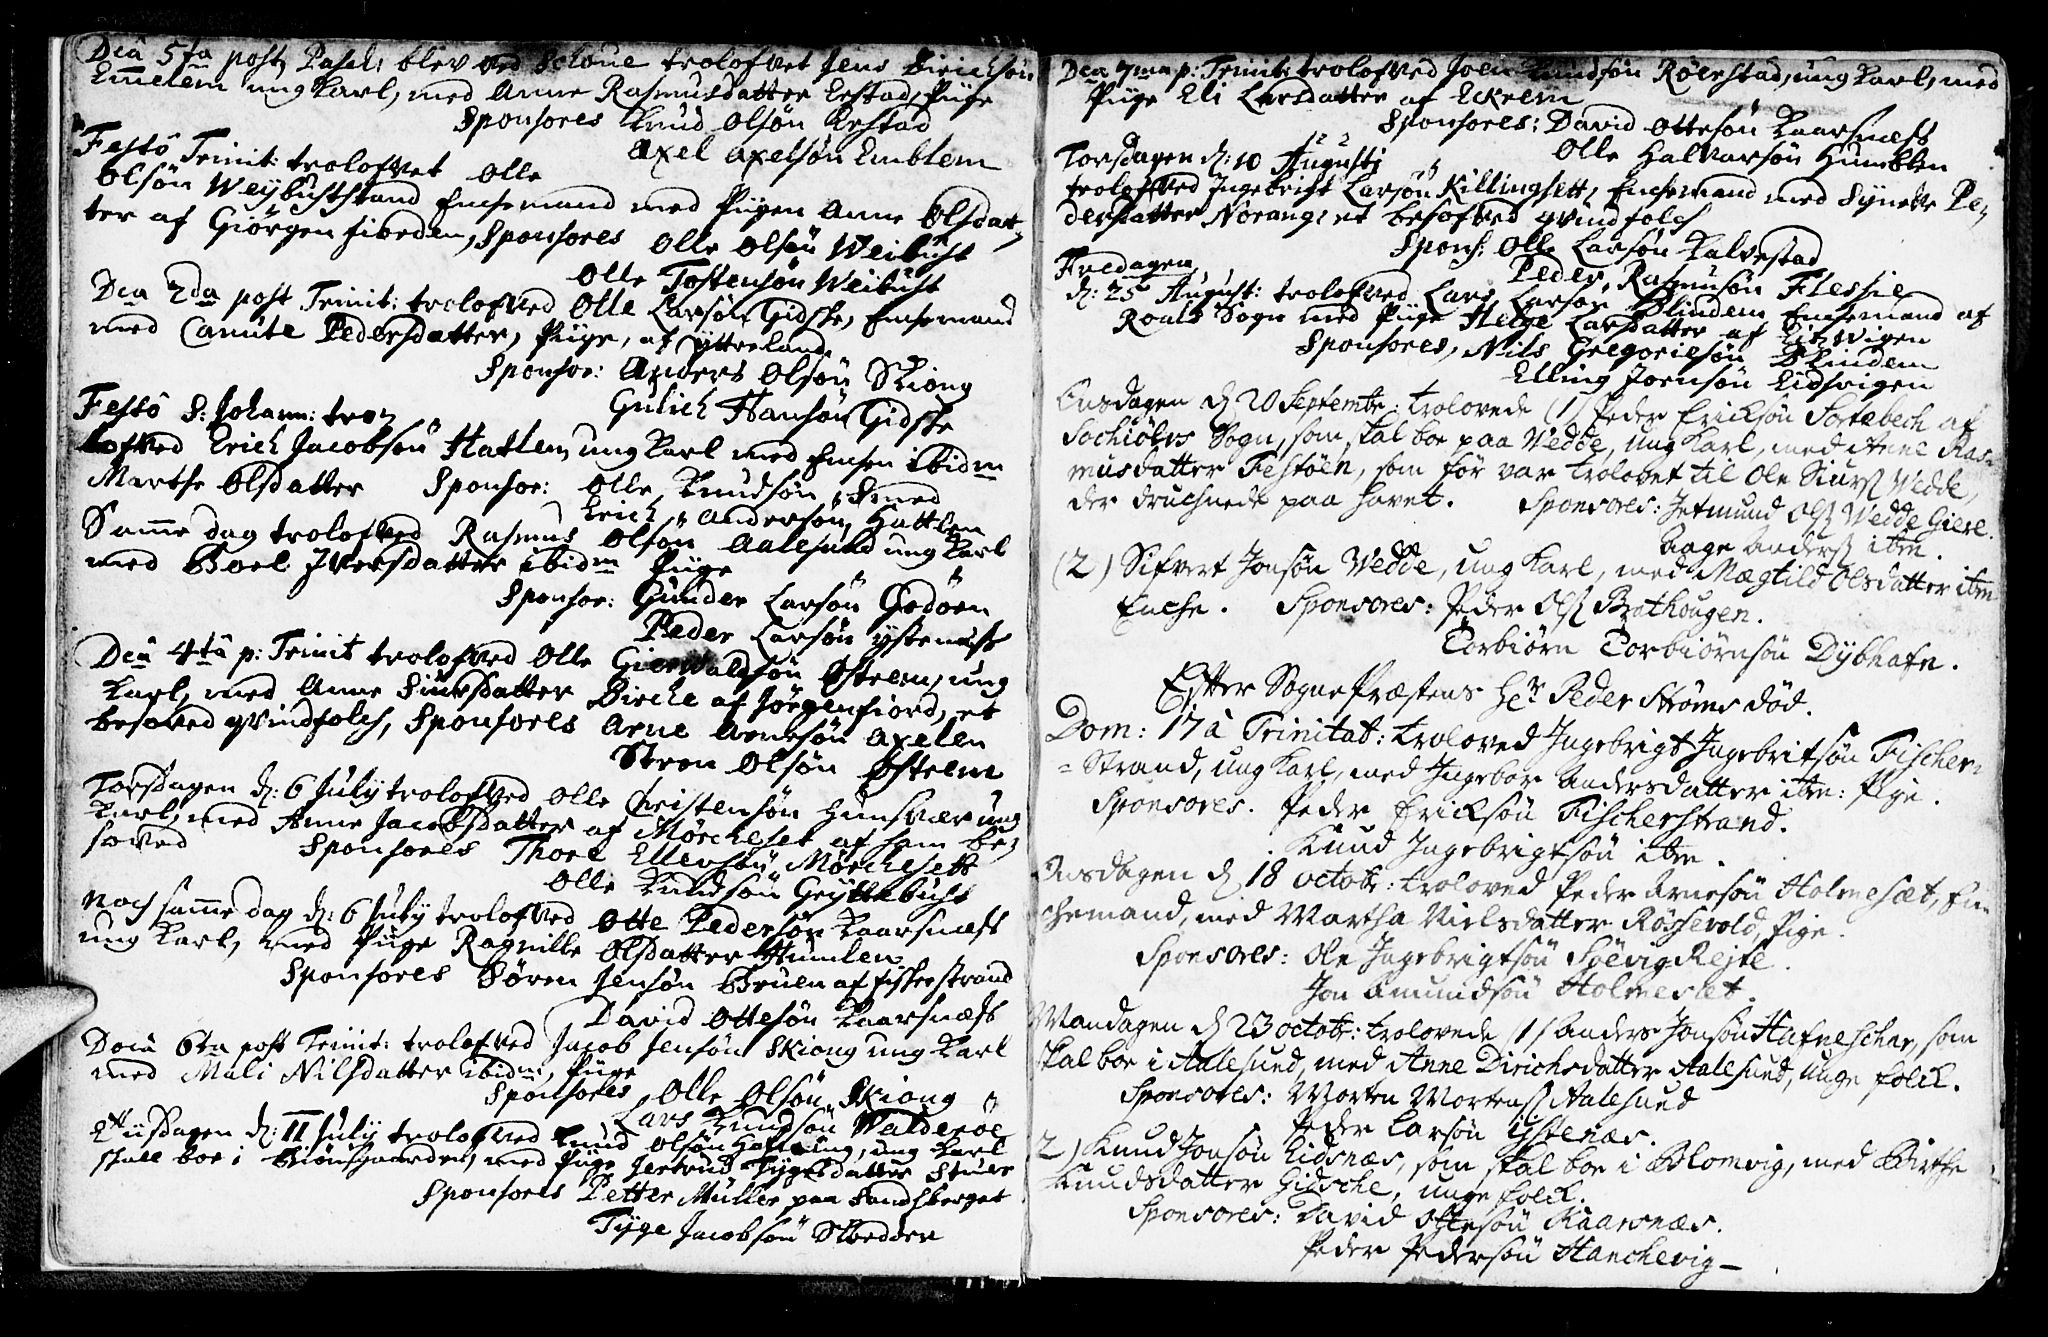 Dca 5ta post Pasch: blev ved Schöue trolofvet Jens Dirichsön
Emelem ung Karl, med Anne Rasmusdatter Erstad, Piige
Sponsores Knud Olsön Erstad
Axel Axelsön Emblem
Festô Trinit: trolofvet Olle
Olsön Weybustrand Enchemand med Piigen Anne Olsdat,
ter af Giörgenfiorden, Sponsores Olle Olsön Weibust
Olle Tostensön Weibust
Dca 2da post Trinit: trolofved Olle Larsön Gidske, Enchemand
med Canute Pedersdatter, Piige, af Ytterland.
Sponsor: Anders Olsön Skiong
Gulich Hansön Gidske
Festô S: Johann: tro,
lofved Erich Jacobsön Hatlem, ung Karl med Enchen ibidm
Marthe Olsdatter Sponsor: Olle Knudsön
Erich Andersön Hatlem
Samme dag trolofved Rasmus Olsön Aalesund ung Karl
med Boel Iversdatter ibidm Piige
Sponsor: Gunder Larsön Godöen
Peder Larsön ystenæs
Dca 4ta p: Trinit trolofved Olle Gierwaldsön Østrem, ung
Karl, med Anne Siursdatter Birche af Jörgenfiord, et
besoved qvindfolch, Sponsores Arne Arnesön Axelen
Steen Olsön Østrem
Torsdagen d: 6 July trolofved Olle Christensön Hunsvær ung
Karl, med Anne Jacobsdatter af Mörcheset af ham be,
soved Sponsores Thore Ellensön Mörchesett
Olle Knudsön Gryttebust
Noch samme dag d: 6 July trolofved Otte Pedersön Kaarsnæss
ung Karl, med Piige Ragnille Olsdatter Humlen
Sponsores Sören Jensön Bruen af Fiskerstrand
David Ottesön Kaarsnæss
Dca 6ta post Trinit: trolofved Jacob Jensön Skiong ung Karl
med Mali Nilsdatter ibidm, Piige
Sponsores Olle Olsön Skiong
Lars Knudsön Walderöe
Tiisdagen d: 11 July trolofved Knud Olsön, ung Karl
skall boe i Biönsgaarden, med Piige Jertrud Tygesdatter
Sponsores Petter Müller paa Sandsberget
Tyge Jacobsön Skodden
Dca 7ma p: Trinit: trolofved Joen Knudsön Röerstad, ung Karl, med
Piige Eli Larsdatter af Eckrem
Sponsores: David Ottesön Kaarsnæss
Olle Halvarsön Humblen
Torsdagen d: 10 Augusti
trolofved Ingebricht Larsön Killingsett, Enchemand med Synette Pe,
dersdatter Norang: et besofved qvindfolch
Spons: Olle Larsön Kalvestad
Peder Rasmusön Flessie
Fredagen
d: 25 August: trolofved Lars Larsön Blindem Enchemand af
Roalds Sogn med Piige Helge Larsdatter af Eidzvigen
Sponsores, Nils Gregoriesön Blindem
Elling Joensön Eidsvigen
Onsdagen d 20 Septembr: trolovede (1) Peder Ericksön Sortebech af
Sochiölvs Sogn, som skal boe paa Vedde, ung Karl, med Anne Ras-
musdatter Festöen, som för var trolovet til Ole Siurs Vedde,
der druchnede paa havet. Sponsores: Jetmund Ols Vedde Giere.
Aage Anders ibm.
(2) Sifvert Jonsön Vedde, ung Karl, med Mægtild Olsdatter ibm
Enche. Sponsores: Peder Ols Brathougen.
Torbiörn Torbiörnsön Dybhafn.
Efter Sogne Præstens Hr Peder Ströms död.
Dom: 17 a Trinitat: troloved Ingebrigt Ingebritsön Fischer-
=Strand, ung Karl, med Ingebor Andersdatter ibm: Pige.
Sponsores. Peder Ericksön Fischerstrand.
Knud Ingebrigtsön ibm.
Onsdagen d 18 octobr: troloved Peder Arnesön Holmeset, En-
chemand, med Martha Nielsdatter Røssevold, Pige.
Sponsores: Ole Ingebrigtsön Spevig Rejte.
Jon Amundsön Holmeslet.
Mandagen d 23 octobr: trolovede (1) Anders Jonsön Hafnescher, som
skal boe i Aalesund, med Anne Dirichsdatter Aalesund, unge folck.
Sponsores: Morten Mortens Aalesund
Peder Larsön ystenæs.
2) Knud Jonsön Eidsnæs, som skal boe i Blomvig, med Birthe
Knudsdatter Gidsche, unge folck.
Sponsores: David Ottesön Kaarsnæs.
Peder Pedersön Hanchevig